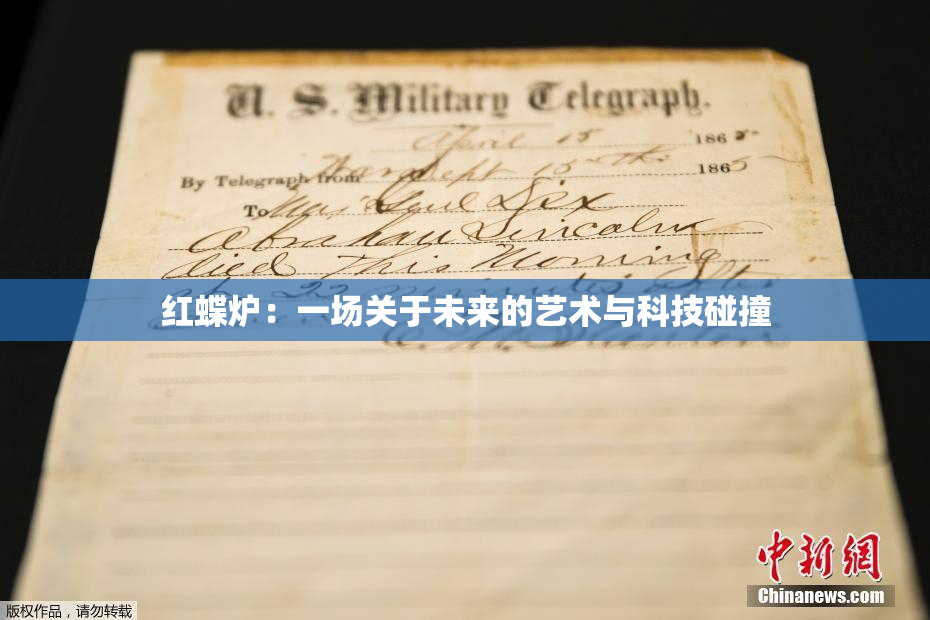 U. S. Military Telegraph.
April 15 1865
By Telegraph from War Dept 15th 1865
To Maj Genl Dix
Abraham Lincoln
died This Morning
at 22 minutes after
红蝶炉：一场关于未来的艺术与科技碰撞
E. M. Stanton
中新網
Chinanews.com
版权作品，请勿转载